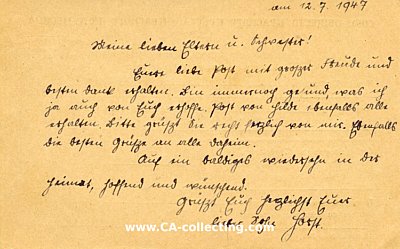 am 12.7.1947
Meine lieben Eltern u. Schwester!
Eure liebe Post mit großer Freude und
besten dank erhalten. Bin immernoch gesund, was ich
ja auch von Euch erhoffe. Post von Hilde ebenfalls alle
erhalten. Bitte grüßt Sie recht herzlich von mir. Ebenfalls
die besten Grüße an alle daheim.
Auf ein baldiges wiedersehn in der
Heimat, hoffend und wünschend.
Grüßt Euch herzlichst Euer
lieber Sohn Horst.
www.CA-collecting.com